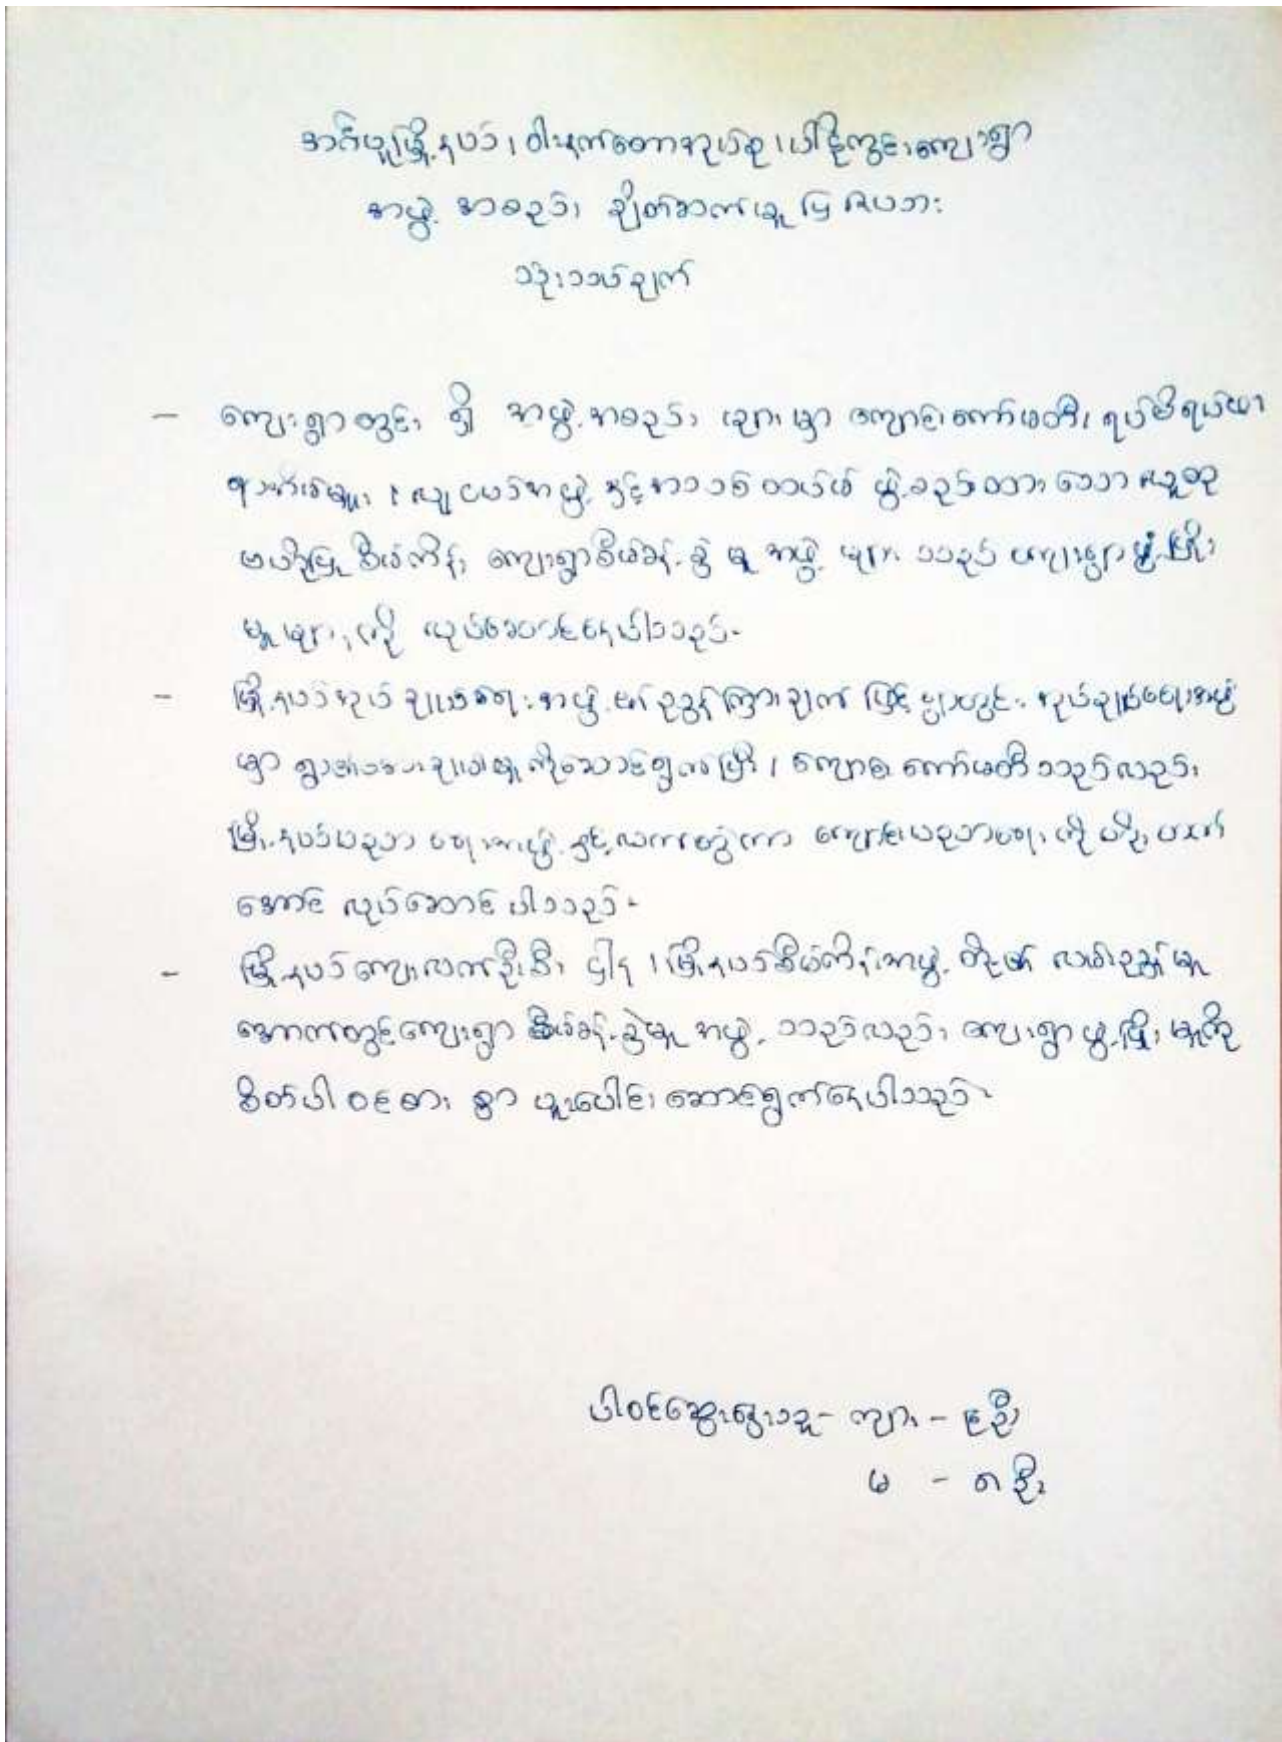 မြို့နယ်၊ ဝါးနက်တောအုပ်စု၊ ပေါင်းကွင်းကျေးရွာ
အဖွဲ့ အစည်း ချိတ်ဆက်မှု ပြ ဇယား
သုံးသပ်ချက်
- ကျေးရွာတွင်း ရှိ အဖွဲ့ အစည်း များမှာ ကျောင်းကော်မတီ၊ ရပ်မိရပ်ဖ၊
နှင့် အသစ် ထပ်မံ ဖွဲ့စည်းထား သော လူထု
ဗဟိုပြု စီမံကိန်း ကျေးရွာစီမံခန့်ခွဲ မှု အဖွဲ့ များ သည် ကျေးရွာဖွံ့ဖြိုး
မှုများ ကို လုပ်ဆောင်နေပါသည်။
- မြို့နယ်အုပ်ချုပ်ရေးအဖွဲ့ ၏ ညွှန်ကြားချက် ဖြင့် ရွာတွင်း အုပ်ချုပ်ရေးအဖွဲ့
မှာ ရွာ ကိုဆောင်ရွက်ပြီး၊ ကျောင်းကော်မတီ သည်လည်း
မြို့နယ်ပညာရေးအဖွဲ့ နှင့် လက်တွဲကာ ကျောင်းပညာရေး ကို
အောင် လုပ်ဆောင် ပါသည်။
- မြို့နယ်ကျေးလက်ဦးစီး ဌာန ၊ မြို့နယ်စီမံကိန်းအဖွဲ့ တို့၏ လမ်းညွှန် မှု
အောက်တွင်ကျေးရွာ စီမံခန့်ခွဲမှု အဖွဲ့ သည်လည်း ကျေးရွာ ဖွံ့ဖြိုး မှုကို
စိတ်ပါ ဝင်စား စွာ ပူးပေါင်း ဆောင်ရွက်နေပါသည်။
ပါဝင်ဆွေးနွေးသူ - ကျား - ဦး
မ - ဦး